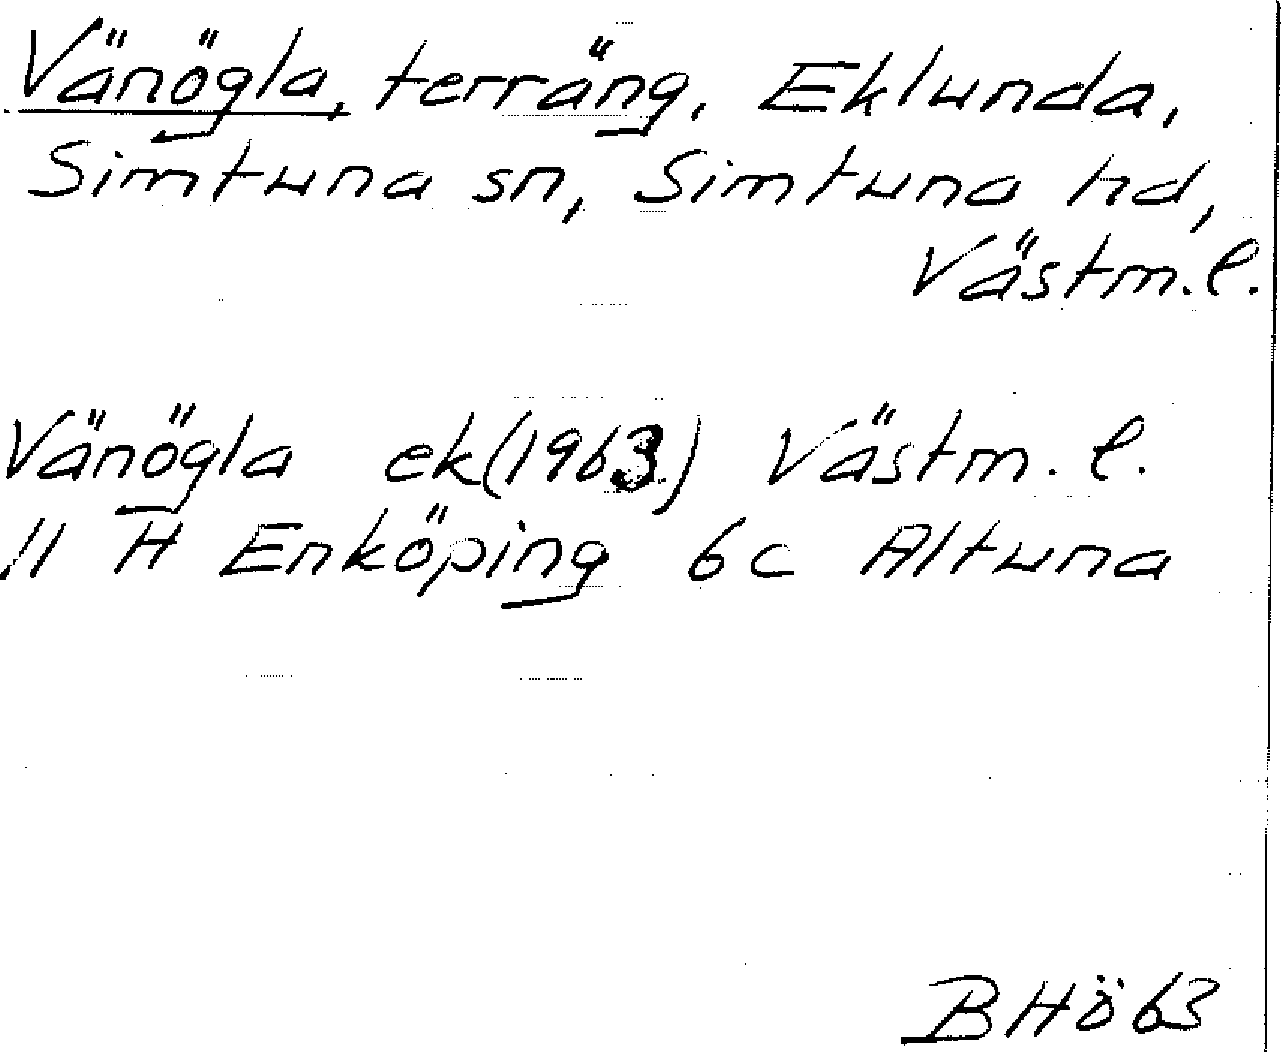 Vänögla, terräng, Eklunda,
Simtuna sn, Simtuna hd,
Västm.l.
Vänögla ek(1963) Västm.l.
11 H Enköping 6c Altuna
BHö63